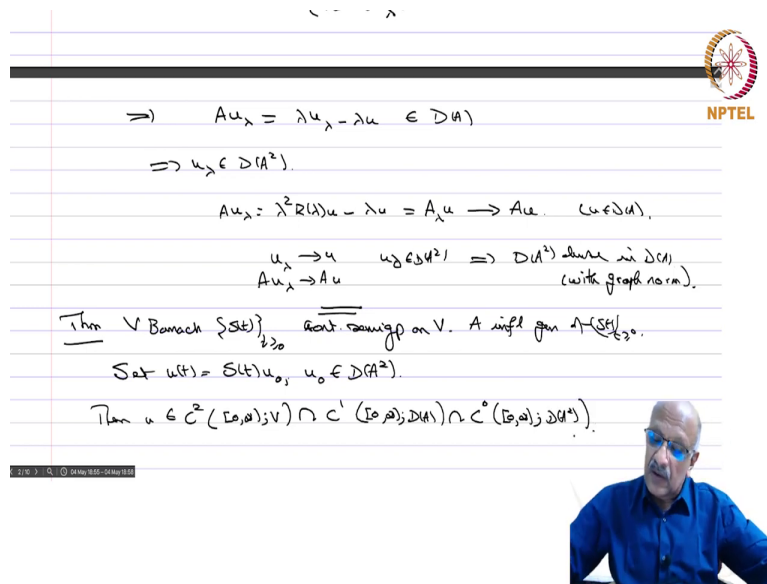 NPTEL
⟹ Au_λ = λu_λ − λu ∈ D(A)
⟹ u_λ ∈ D(A²).
Au_λ = λ²R(λ)u − λu = A_λu ⟶ Au. (u∈D(A)).
u_λ → u u_λ ∈ D(A²) ⟹ D(A²) dense in D(A)
Au_λ → Au (with graph norm).
Thm V Banach {S(t)}_{t≥0} cont. semigp on V. A infl gen of {S(t)}_{t≥0}.
Set u(t) = S(t)u₀, u₀ ∈ D(A²).
Then u ∈ C²([0,∞);V) ∩ C¹([0,∞);D(A)) ∩ C⁰([0,∞);D(A²)).
2/10 04 May 18:55 - 04 May 18:58